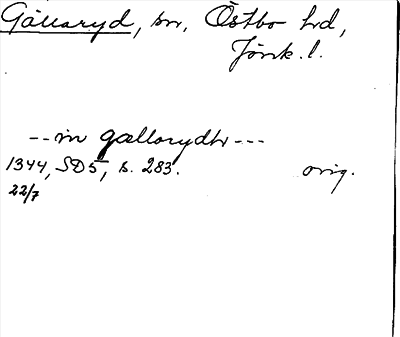 Gällaryd, sn, Östbo hd,
Jönk. l.
-- in gællarydh ---
1344, SD5, s. 283. orig.
22/7